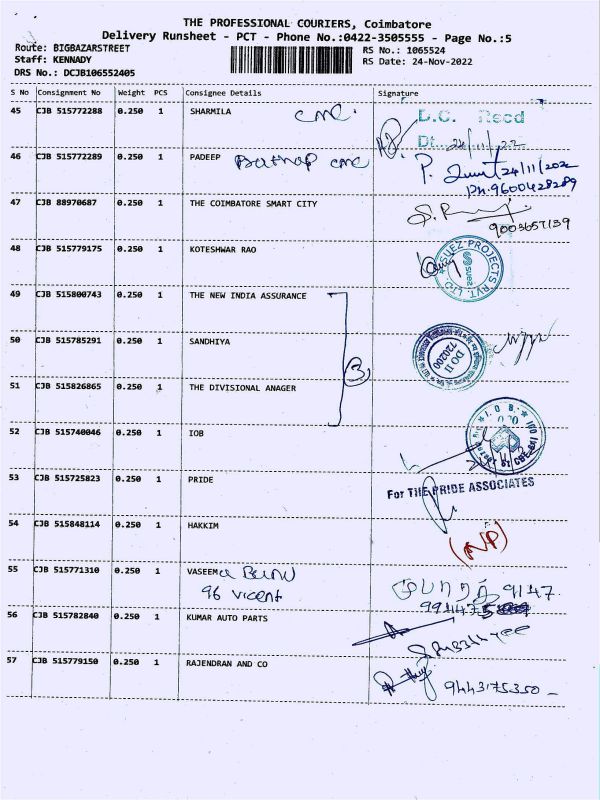 THE PROFESSIONAL COURIERS, Coimbatore
Delivery Runsheet - PCT - Phone No.:0422-3505555 - Page No.:5
Route: BIGBAZARSTREET
Staff: KENNADY
DRS No.: DCJB106552405
RS No.: 1065524
RS Date: 24-Nov-2022
S No Consignment No Weight PCS Consignee Details Signature
45 CJB 515772288 0.250 1 SHARMILA cmc. D.C. Recd
Dt. 24/11/22
46 CJB 515772289 0.250 1 PADEEP cmc P. 24/11/202
PH:9600428289
47 CJB 88970687 0.250 1 THE COIMBATORE SMART CITY
9003657139
48 CJB 515779175 0.250 1 KOTESHWAR RAO SUEZ PROJECTS PVT. LTD suez
49 CJB 515800743 0.250 1 THE NEW INDIA ASSURANCE
50 CJB 515785291 0.250 1 SANDHIYA DO II 720200
51 CJB 515826865 0.250 1 THE DIVISIONAL ANAGER 3
52 CJB 515740046 0.250 1 IOB I. O. B.
53 CJB 515725823 0.250 1 PRIDE For THE PRIDE ASSOCIATES
54 CJB 515848114 0.250 1 HAKKIM (NP)
55 CJB 515771310 0.250 1 VASEEMa Banu 9147
96 vicent 994475
56 CJB 515782840 0.250 1 KUMAR AUTO PARTS
57 CJB 515779150 0.250 1 RAJENDRAN AND CO 9443175350